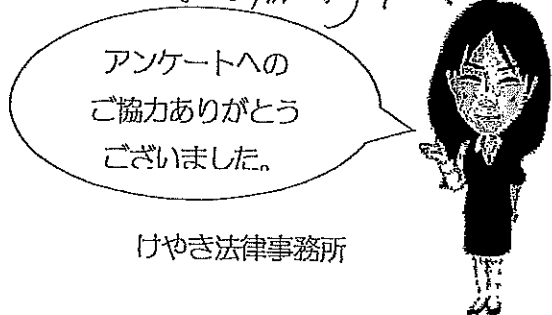 アンケートへの
ご協力ありがとう
ございました。
けやき法律事務所